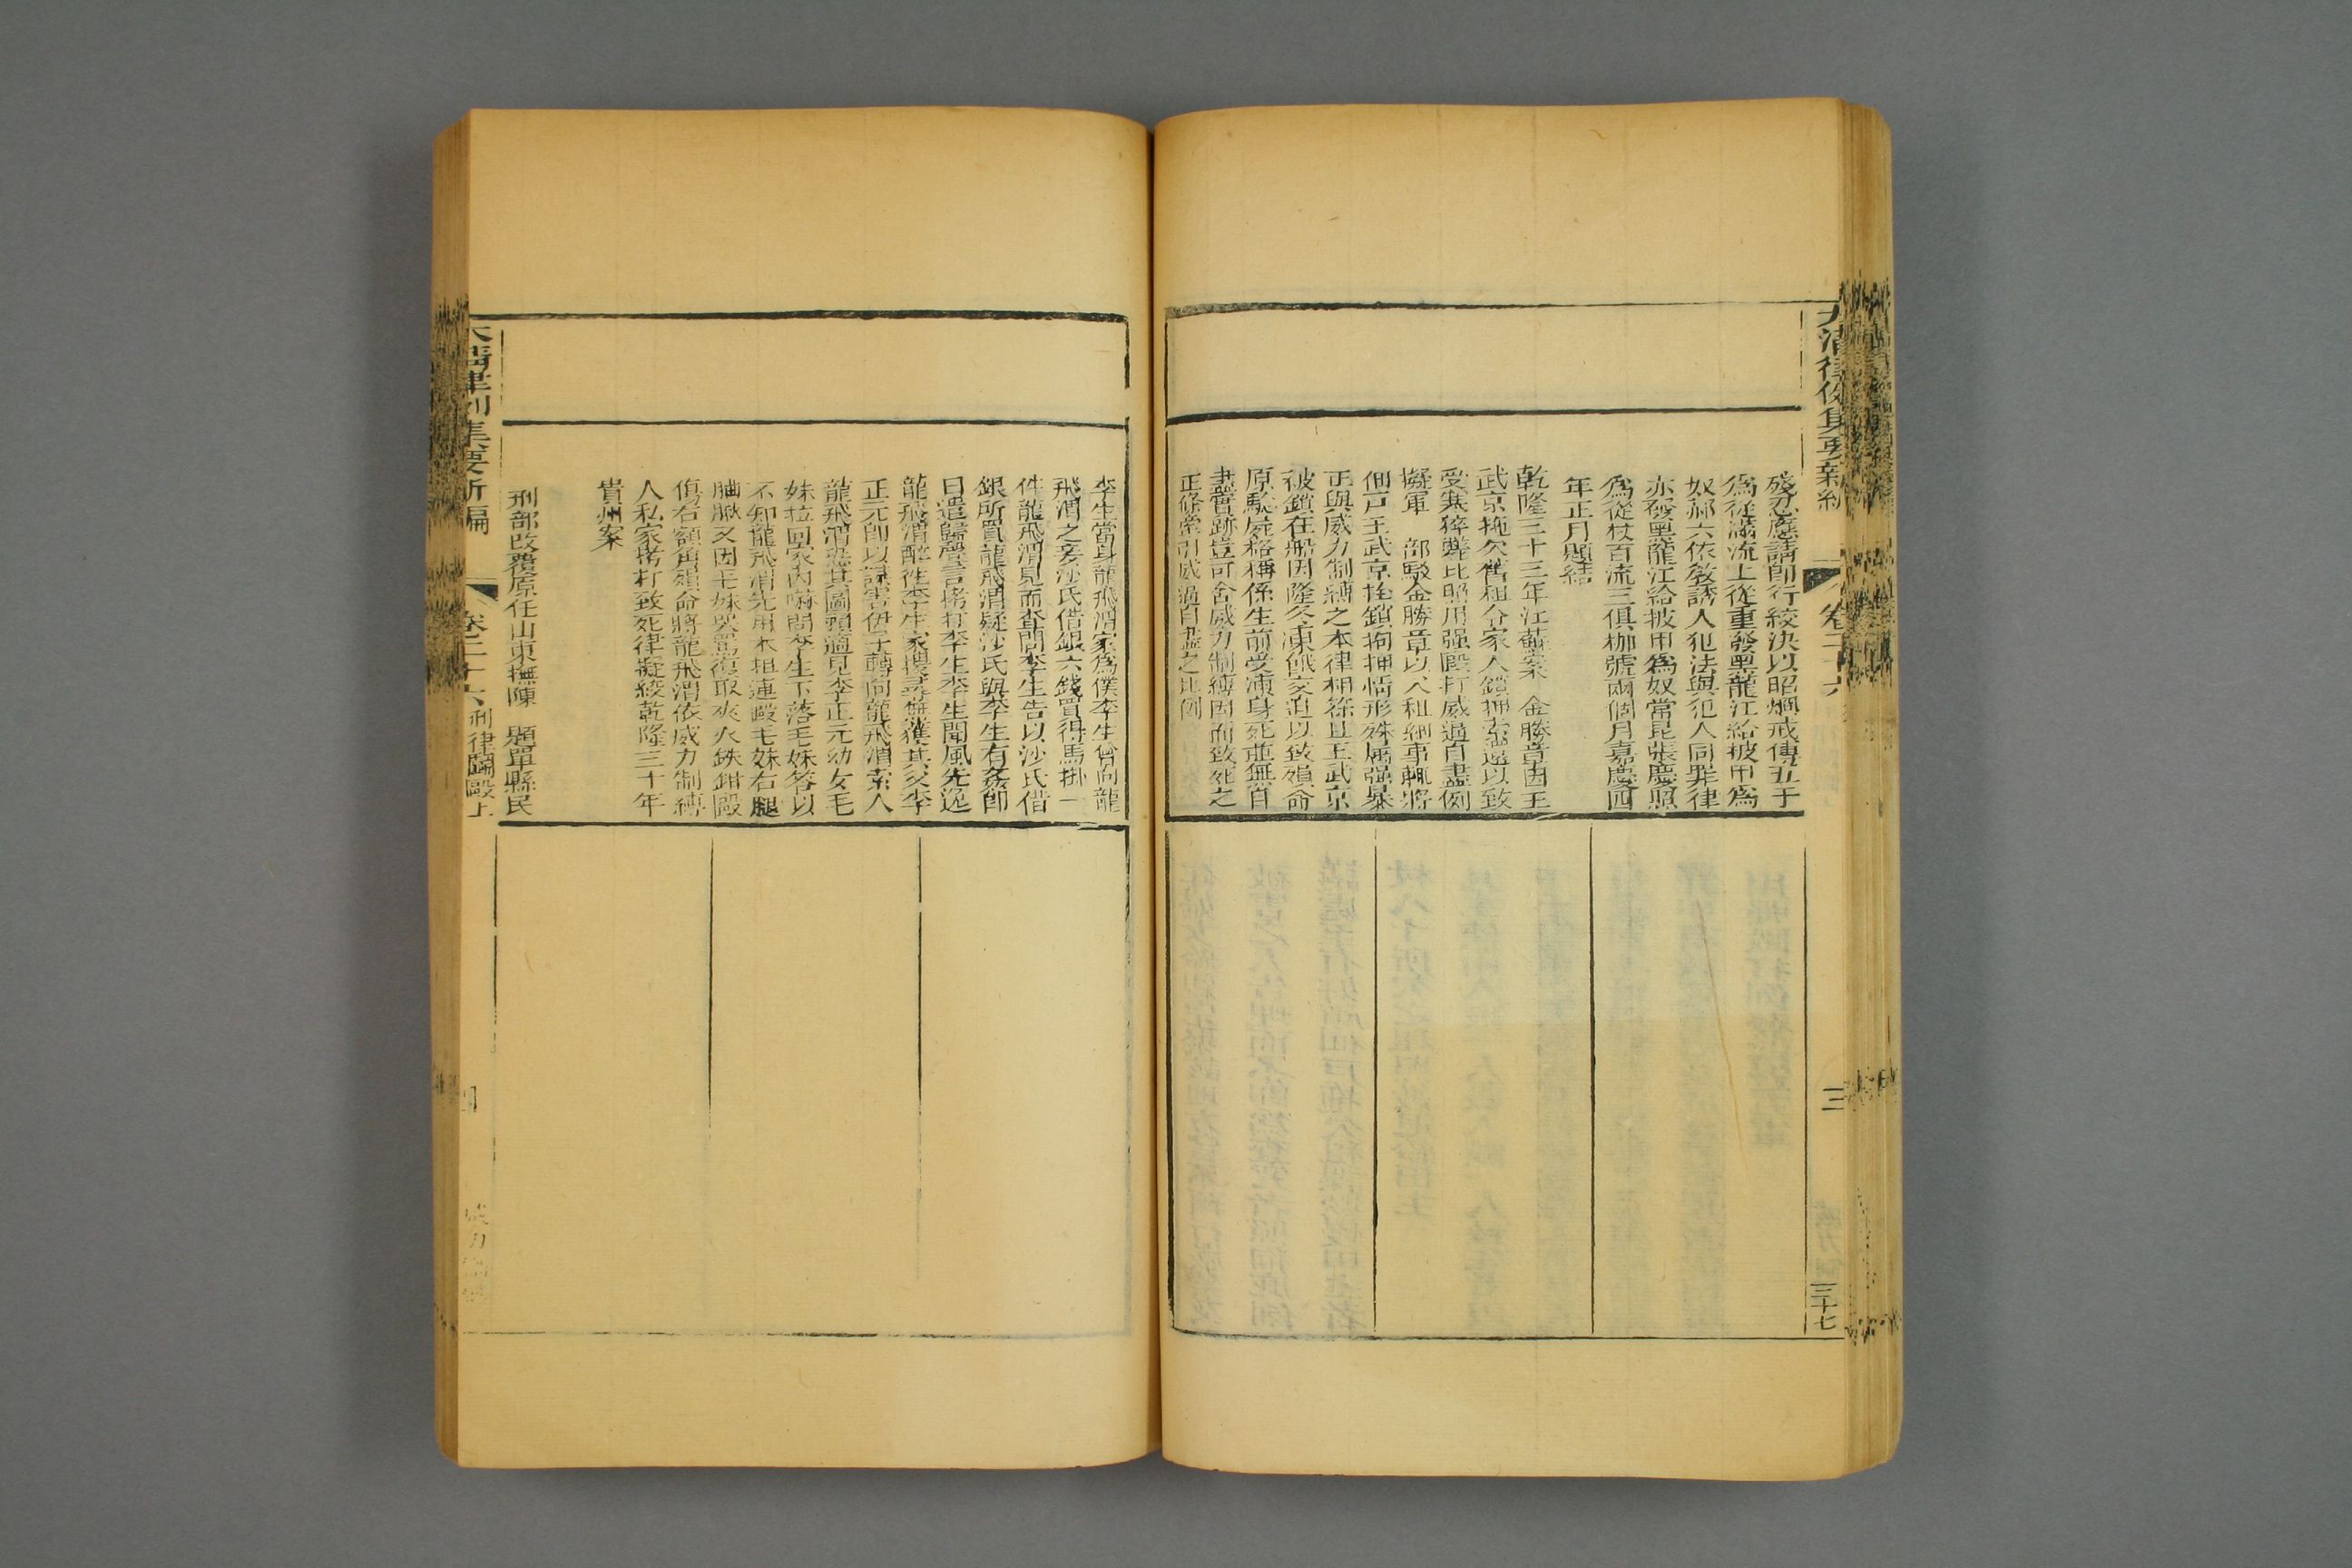 大清律例集要新編
卷二十六
三
三十七
殘忍應請即行絞決以昭烱戒傅五于
爲從滿流上從重發黑龍江給披甲爲
奴郝六依教誘人犯法與犯人同罪律
亦發黑龍江給披甲爲奴常昆張慶照
爲從杖百流三俱枷號兩個月嘉慶四
年正月題結
乾隆三十三年江蘇案 金勝章因王
武京拖欠舊租令家人鎖押索逼以致
受寒猝斃比照用强毆打威逼自盡例
擬軍 部駁金勝章以欠租細事輒將
佃戸王武京拴鎖拘押情形殊屬强暴
正與威力制縛之本律相符且王武京
彼鎖在船因隆冬凍餓交迫以致殞命
原驗屍格稱係生前受凍身死並無自
盡實跡豈可舍威力制縛因而致死之
正條牽引威逼自盡之比例
李生當身龍飛渭家爲僕李生曾向龍
飛渭之妾沙氏借銀六錢買得馬掛一
件龍飛渭見而查問李生告以沙氏借
銀所買龍飛渭疑沙氏與李生有姦即
日遣歸聲言拷打李生李生聞風先逸
龍飛渭醉往李生家搜尋無獲其父李
正元即以謀害伊子轉向龍飛渭索人
龍飛渭恐其圖賴適見李正元幼女毛
妹拉回家內嚇問李生下落毛妹答以
不知龍飛渭先用木棍連毆毛妹右腿
臁肕又因毛妹哭罵復取夾火鉄鉗毆
傷右額角殞命將龍飛渭依威力制縛
人私家拷打致死律擬絞乾隆三十年
貴州案
刑部改覆原任山東撫陳 題單縣民
大清律例集要新編
卷二十六
刑律鬬毆上
四
威力制縛